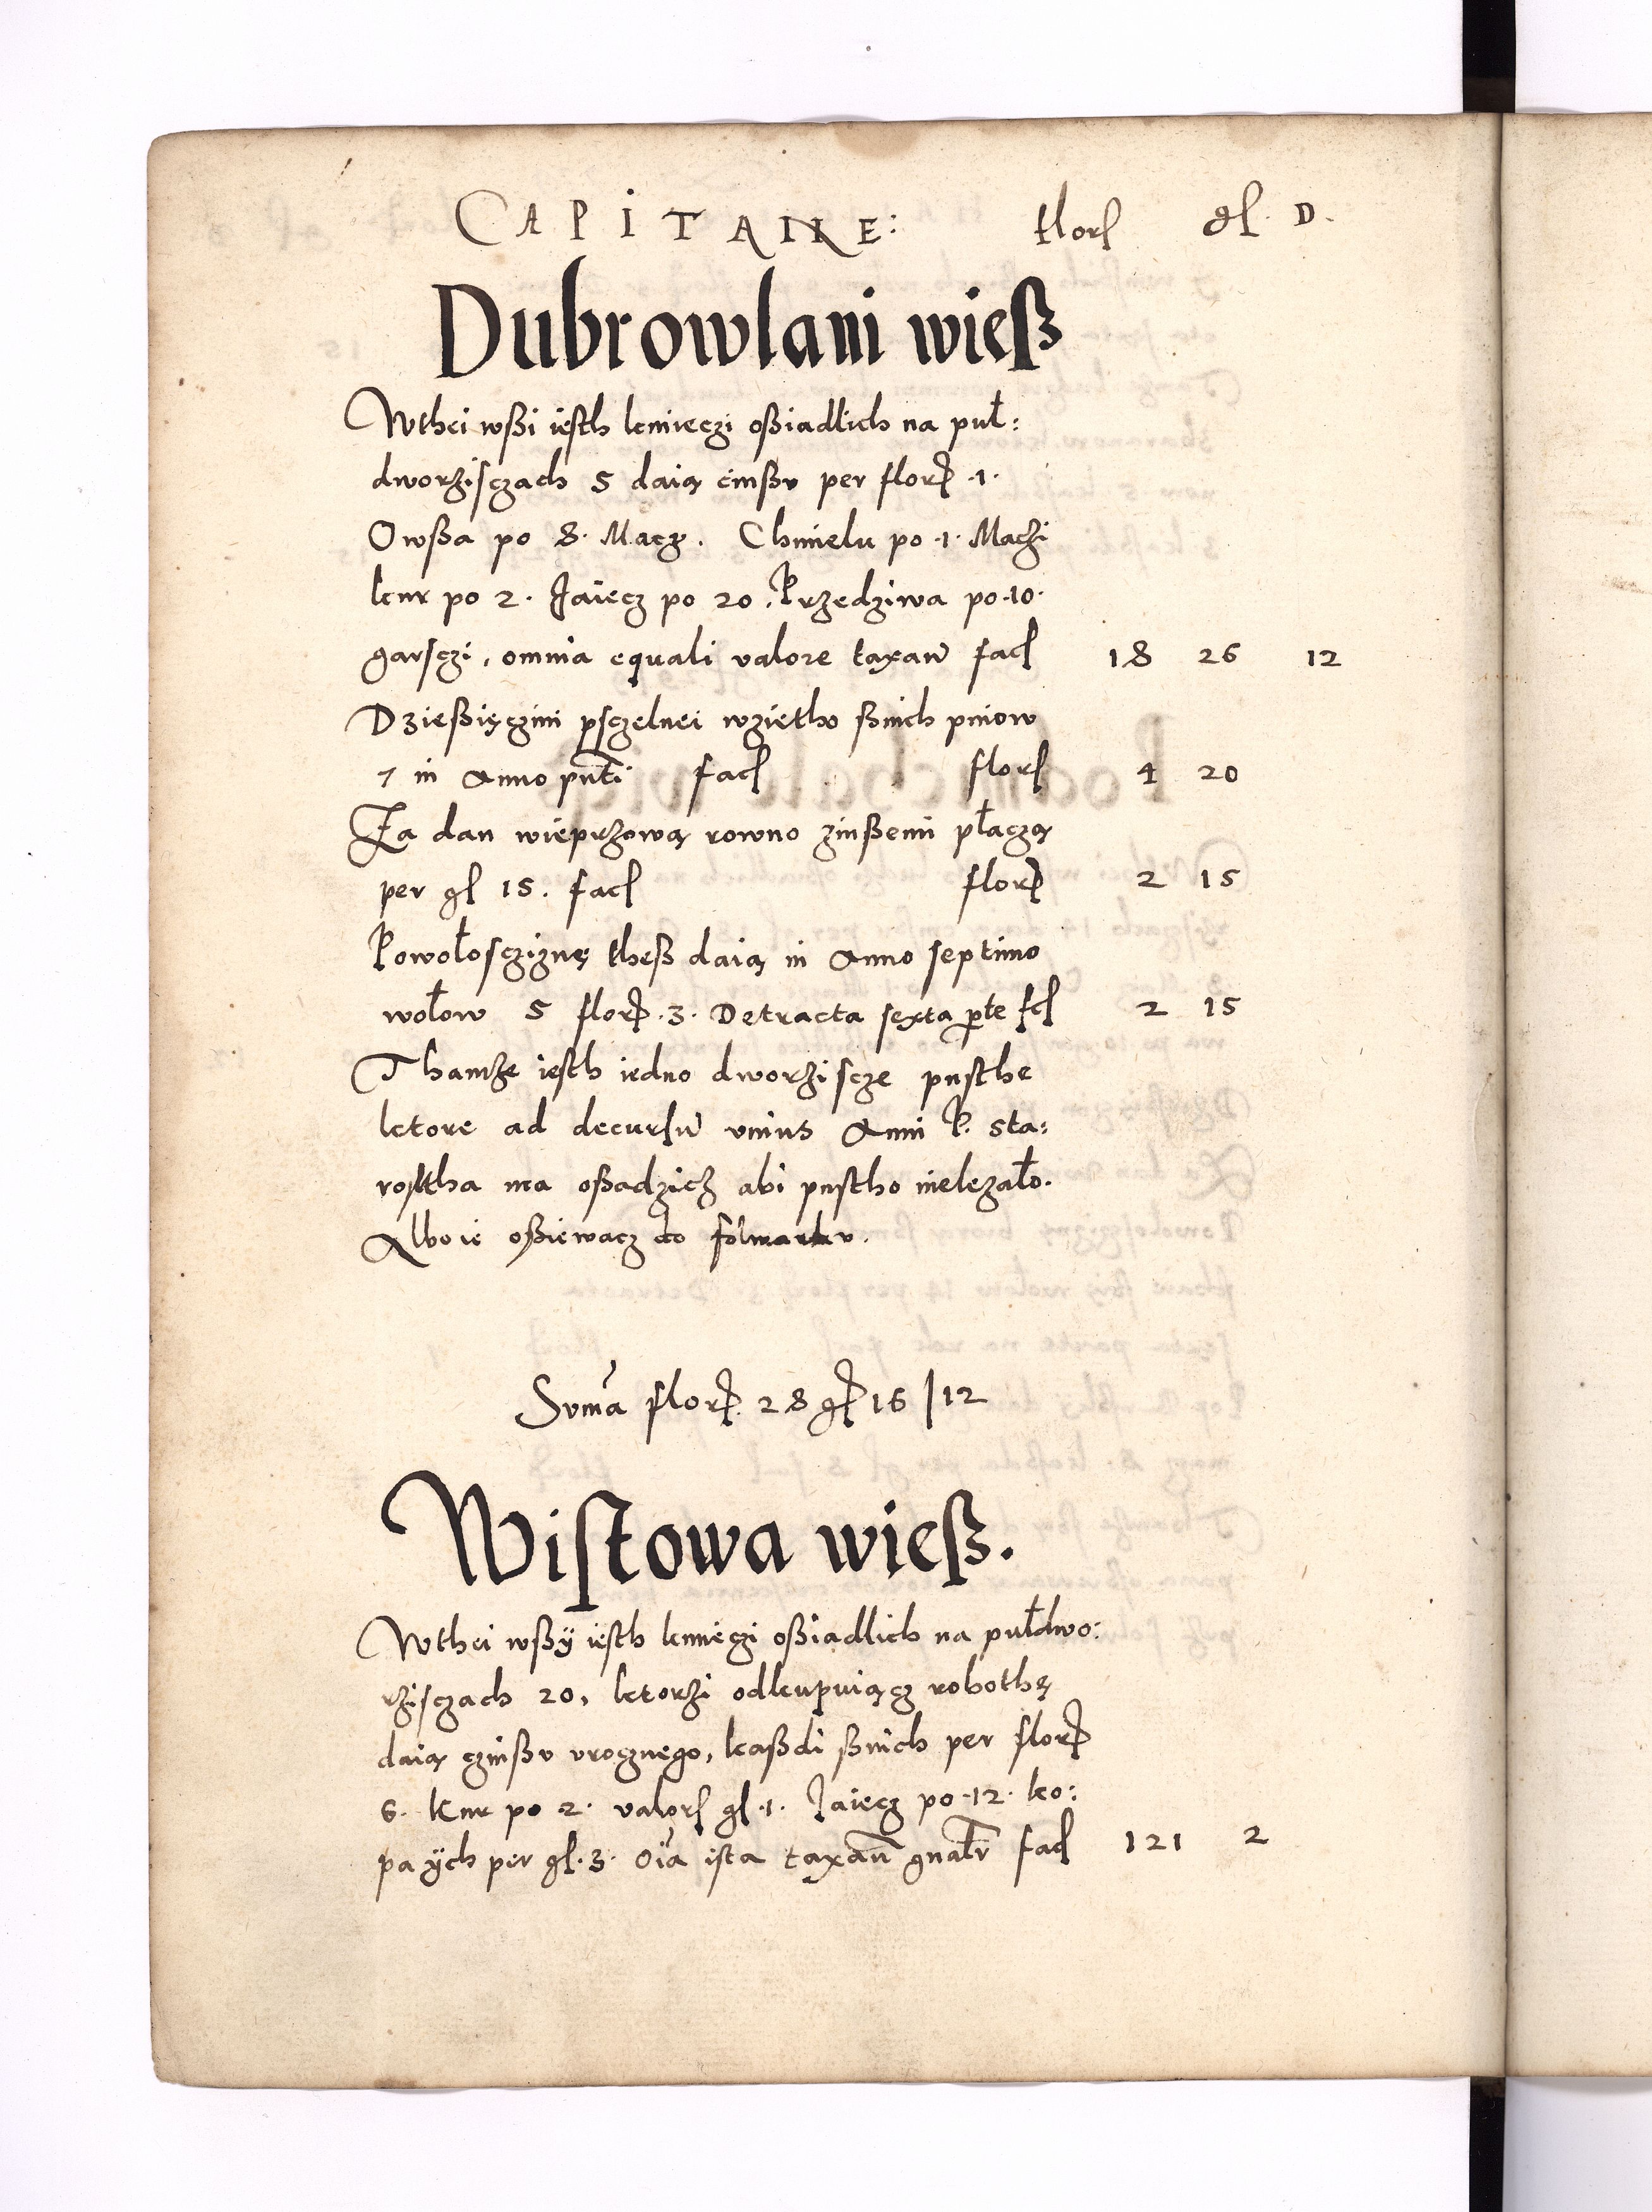 CAPITANE: flor gl. D.
Dubrowlani wieß
Wthei wßi iesth kmieczi oßiadlich na puł:
dworziſczach 5 daią cinßv per flor .1.
Owßa po 8. Macz. Chmielu po .1. Maczi
kur po 2. Jaiecz po 20. Przedziwa po .10.
garſczi, omnia equali valore taxan̄ facl 18 26 12
Dzießięczini pſczelnei wzietho ßnich pniow
7 in Anno pnti facl flor 4 20
Za dan wieprzową rowno zinßemi płaczą
per gl 15. facl flor 2 15
Powołoſcziznę theß daią in Anno septimo
wołow 5 flor .3. Detracta sexta pte fcl 2 15
Thamże iesth iedno dworziſcze pusthe
ktore ad decursu̅ vnius Anni P. sta:
rostha ma oßadzicz abi pustho nieleżało.
Albo ie oßiewacz do folwarku.
Sum̄a flor 28 g 16 | 12
Wiſtowa wieß.
Wthei wßÿ iesth kmieczi oßiadlich na pułdwo:
rziſczach 20, ktorzi odkupuiącz robothę
daią czinßv vrocznego, kaßdi ßnich per flor
6. kur po 2. valor gl .1. Jaiecz po .12. ko:
pa ÿch per gl .3. Oi̅a ista taxan̄ gnałr facl 121 2